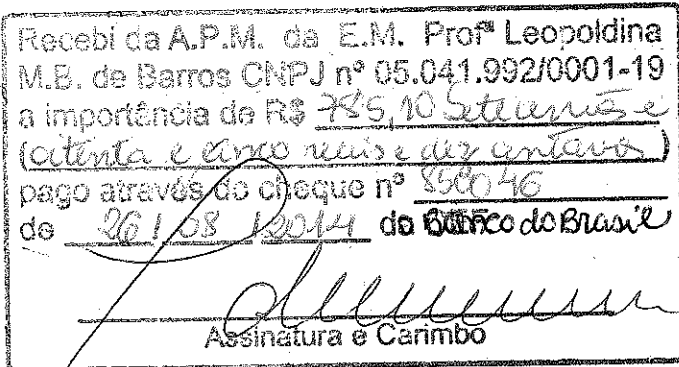 Recebi da A.P.M. da E.M. Profª Leopoldina
M.B. de Barros CNPJ nº 05.041.992/0001-19
a importância de R$ 785,10 Setecentos e
(oitenta e cinco reais e dez centavos)
pago através do cheque nº 850046
de 26/08/2014 do Banco do Brasil
Assinatura e Carimbo